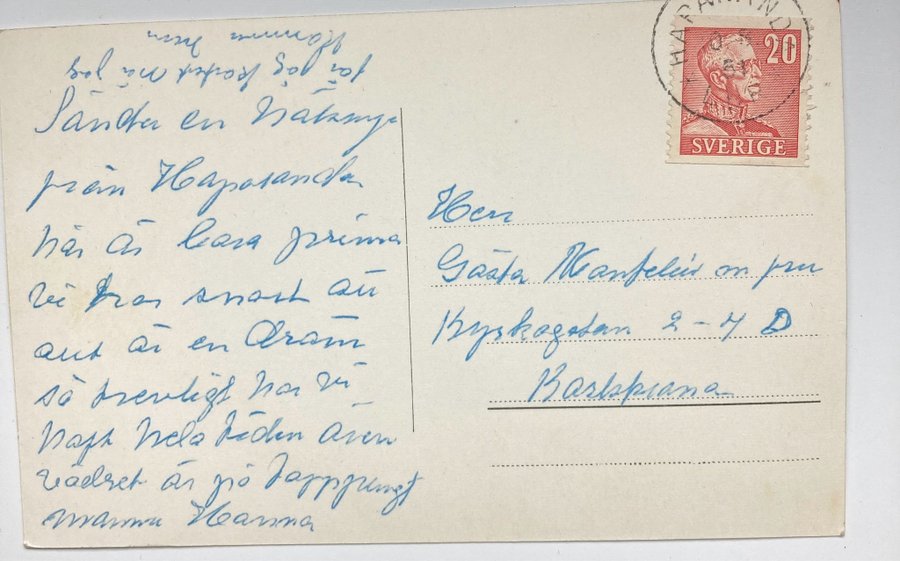 Sänder en hälsning
från Haparanda
här är bara prima
vi tror snart att
allt är en dröm
så trevligt har vi
haft hela tiden även
vädret är på
mamma Hanna
får jag kortet när jag
kommer hem
HAPARANDA
20
SVERIGE
Herr
Gösta m fru
Kyrkogatan 2-4 D